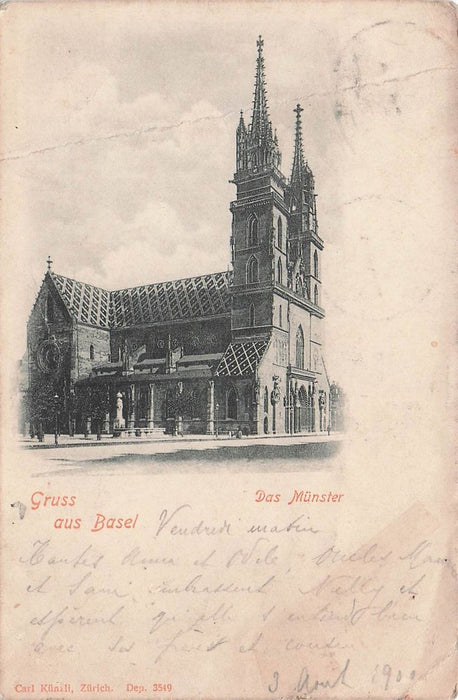 Gruss
aus Basel
Das Münster
Vendredi matin
Tantes Anna et Odile, Oncles Max
et Sami, embrassent Nelly et
espèrent qu'elle s'entend bien
avec ses et
3 Août 1900
Carl Künzli, Zürich. Dep. 3549